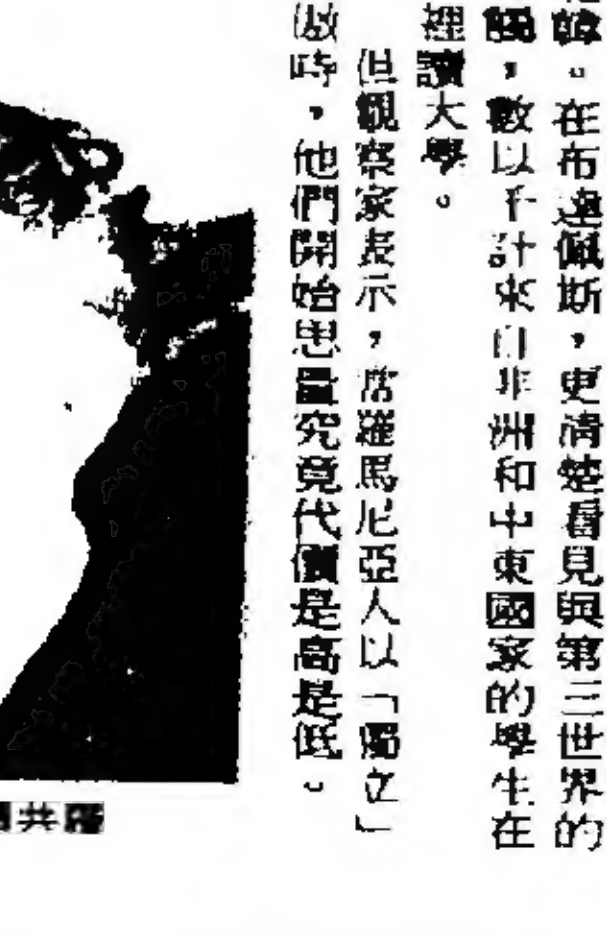 韓。在布達佩斯，更清楚看見與第三世界的
觸，數以千計來自非洲和中東國家的學生在
裡讀大學。
但觀察家表示，當羅馬尼亞人以「獨立」
時，他們開始思量究竟代價是高是低。
共